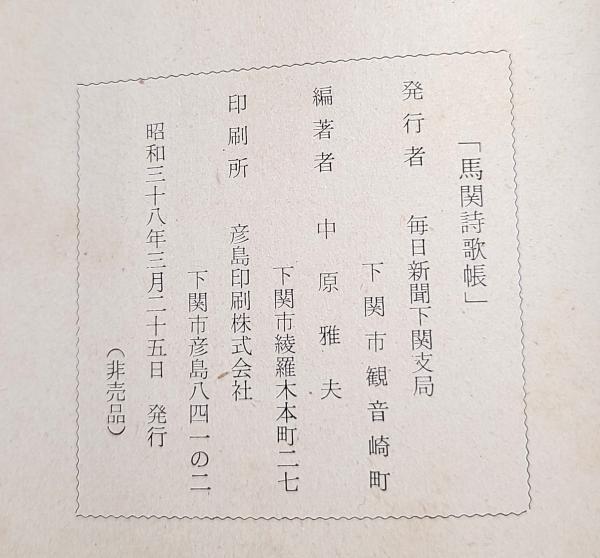 「馬関詩歌帳」
発行者 毎日新聞下関支局
下関市観音崎町
編著者 中原雅夫
下関市綾羅木本町二七
印刷所 彦島印刷株式会社
下関市彦島八四一の二
昭和三十八年三月二十五日 発行
(非売品)